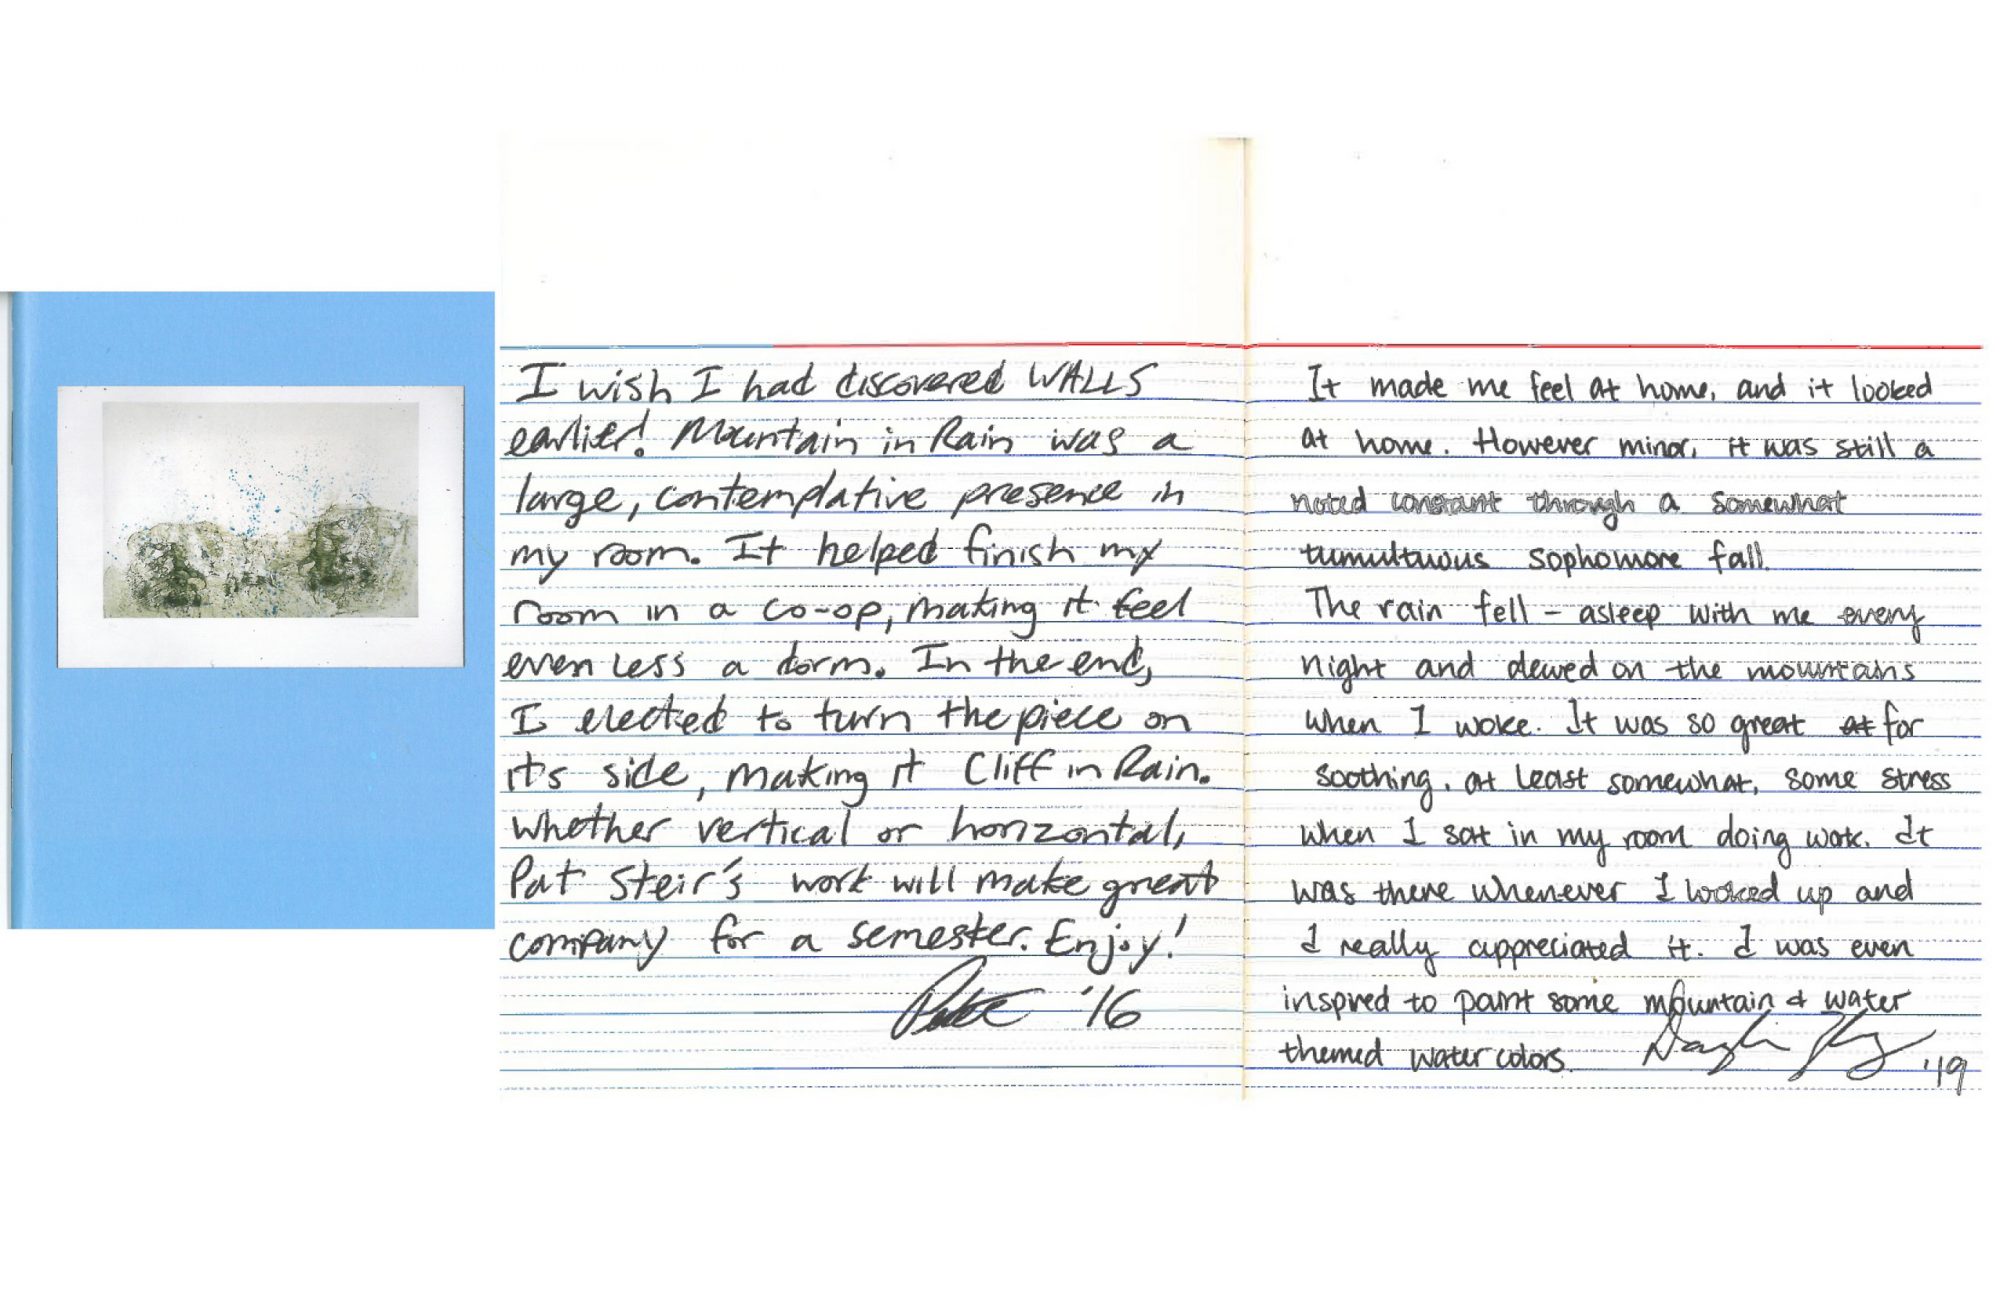 I wish I had discovered WALLS
earlier! Mountain in Rain was a
large, contemplative presence in
my room. It helped finish my
room in a co-op, making it feel
even less a dorm. In the end,
I elected to turn the piece on
its side, making it Cliff in Rain.
Whether vertical or horizontal,
Pat Steir's work will make great
company for a semester. Enjoy!
'16
It made me feel at home, and it looked
at home. However minor, it was still a
noted constant through a somewhat
tumultuous sophomore fall.
The rain fell – asleep with me every
night and dewed on the mountains
when I woke. It was so great at for
soothing, at least somewhat, some stress
when I sat in my room doing work. It
was there whenever I looked up and
I really appreciated it. I was even
inspired to paint some mountain & water
themed watercolors.
'19